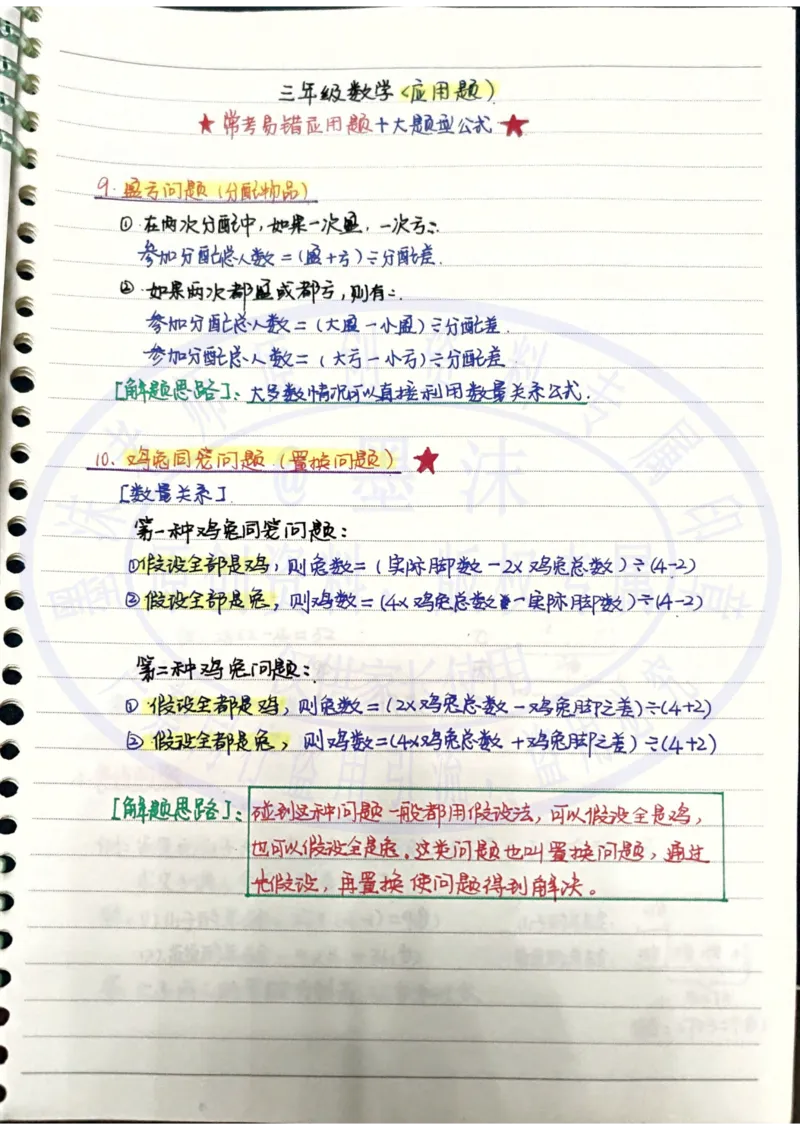 三年级数学<应用题>
★常考易错应用题+大题型公式★
9. 盈亏问题(分配物品)
① 在两次分配中,如果一次盈,一次亏:
参加分配总人数=(盈+亏)÷分配差.
② 如果两次都盈或都亏,则有:
参加分配总人数=(大盈-小盈)÷分配差.
参加分配总人数=(大亏-小亏)÷分配差.
[解题思路]:大多数情况可以直接利用数量关系公式.
10. 鸡兔同笼问题(置换问题)★
[数量关系]
第一种鸡兔同笼问题:
①假设全部是鸡,则兔数=(实际脚数-2×鸡兔总数)÷(4-2)
②假设全部是兔,则鸡数=(4×鸡兔总数-实际脚数)÷(4-2)
第二种鸡兔问题:
① 假设全都是鸡,则兔数=(2×鸡兔总数-鸡兔脚之差)÷(4+2)
② 假设全都是兔,则鸡数=(4×鸡兔总数+鸡兔脚之差)÷(4+2)
[解题思路]:碰到这种问题一般都用假设法,可以假设全是鸡,
也可以假设全是兔。这类问题也叫置换问题,通过
先假设,再置换使问题得到解决。
@墨沫